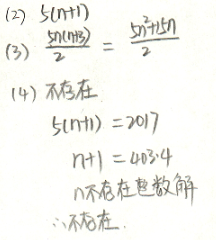 (2) 5(n+1)
(3) 5n(n+3)/2 = 5n²+15n/2
(4) 不存在
5(n+1) = 2017
n+1 = 403.4
n不存在整数解
∴不存在.